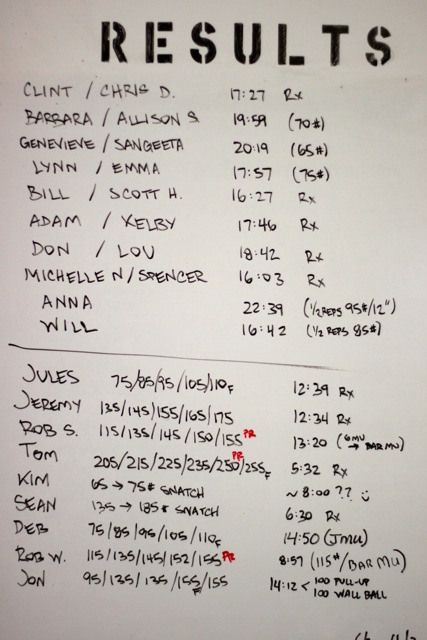 RESULTS
CLINT / CHRIS D. 17:27 Rx
BARBARA / ALLISON S. 19:59 (70#)
GENEVIEVE / SANGEETA 20:19 (65#)
LYNN / EMMA 17:57 (75#)
BILL / SCOTT H. 16:27 Rx
ADAM / KELBY 17:46 Rx
DON / LOU 18:42 Rx
MICHELLE N / SPENCER 16:03 Rx
ANNA 22:39 (1/2 REPS 95#/12")
WILL 16:42 (1/2 REPS 85#)
JULES 75/85/95/105/110F 12:39 Rx
JEREMY 135/145/155/165/175 12:34 Rx
ROB S. 115/135/145/150/155 PR 13:20 (6MU → BAR MU)
TOM 205/215/225/235/250 PR/255F 5:32 Rx
KIM 65 → 75# SNATCH ~ 8:00 ?? :)
SEAN 135 → 185# SNATCH 6:30 Rx
DEB 75/85/95/105/110F 14:50 (Jmu)
ROB W. 115/135/145/152/155 PR 8:57 (115#/BAR MU)
JON 95/135/135/155F/155 14:12 < 100 PULL-UP
100 WALL BALL